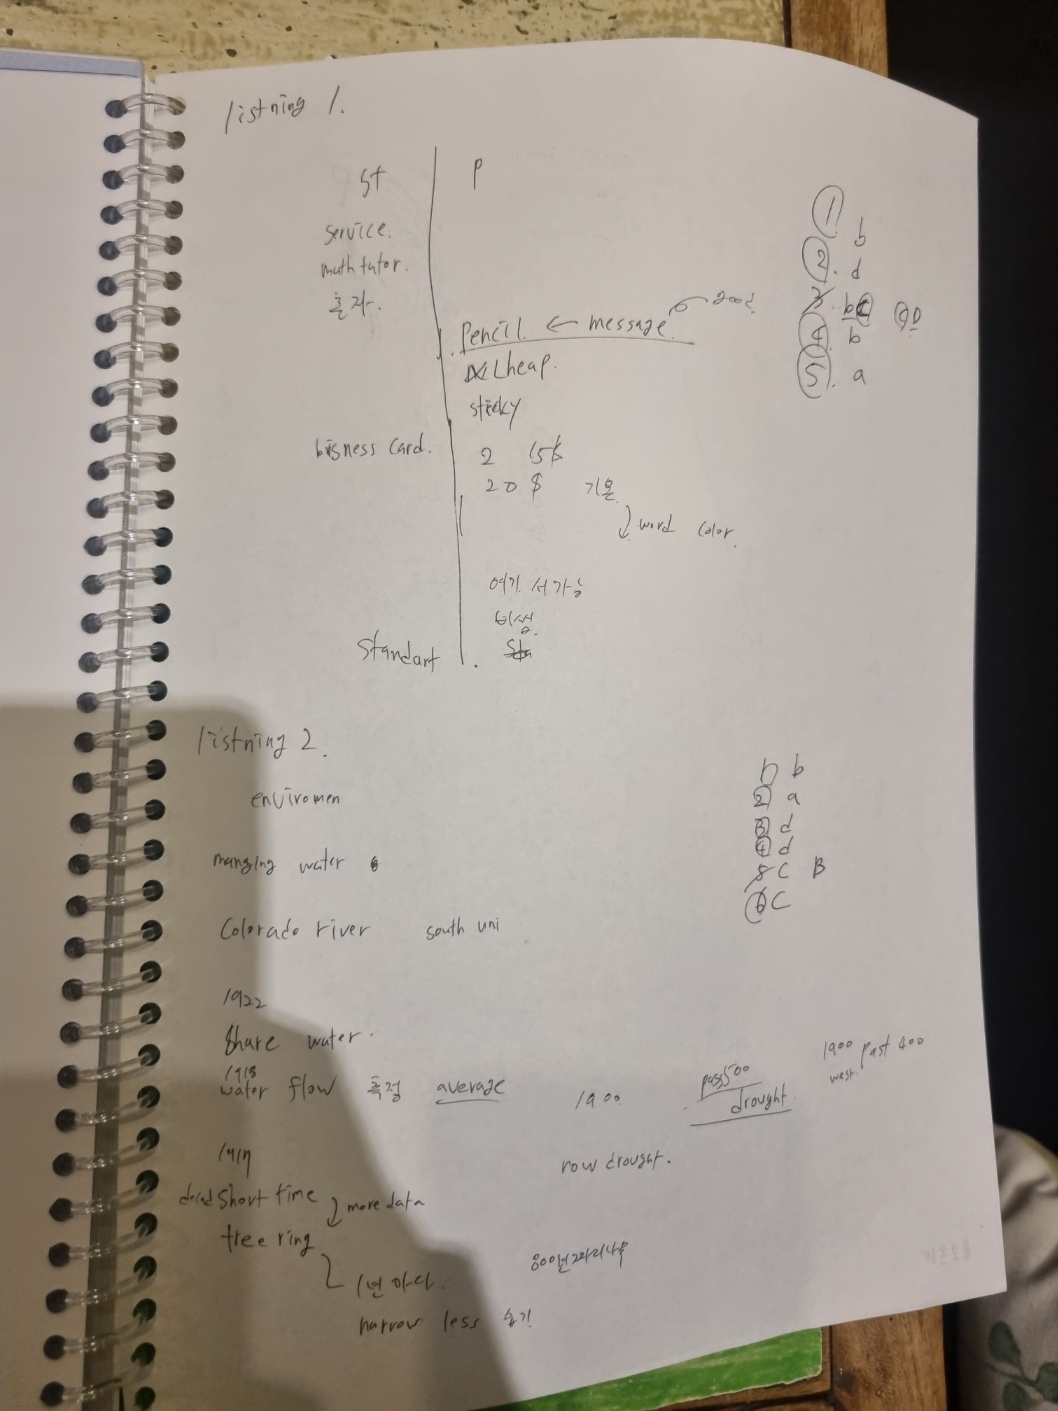 listning 1.
st P
service.
math tutor.
혼자.
pencil. ← message.
cheap.
sticky
bisness card. 2 15$
20 $ 기본
word color.
여기서 가능
비쌈.
Standart
1. b
2. d
4. b
5. a
listning 2.
enviromen
manging water
Colorado river south uni
1922
Share water.
water flow 측정 average 1900.
past 500
drought.
1900 past 400
west.
now drought.
short time more data
tree ring
1년 마다.
narrow less 습기
1 b
2 a
3 d
4 d
5 C B
6 C